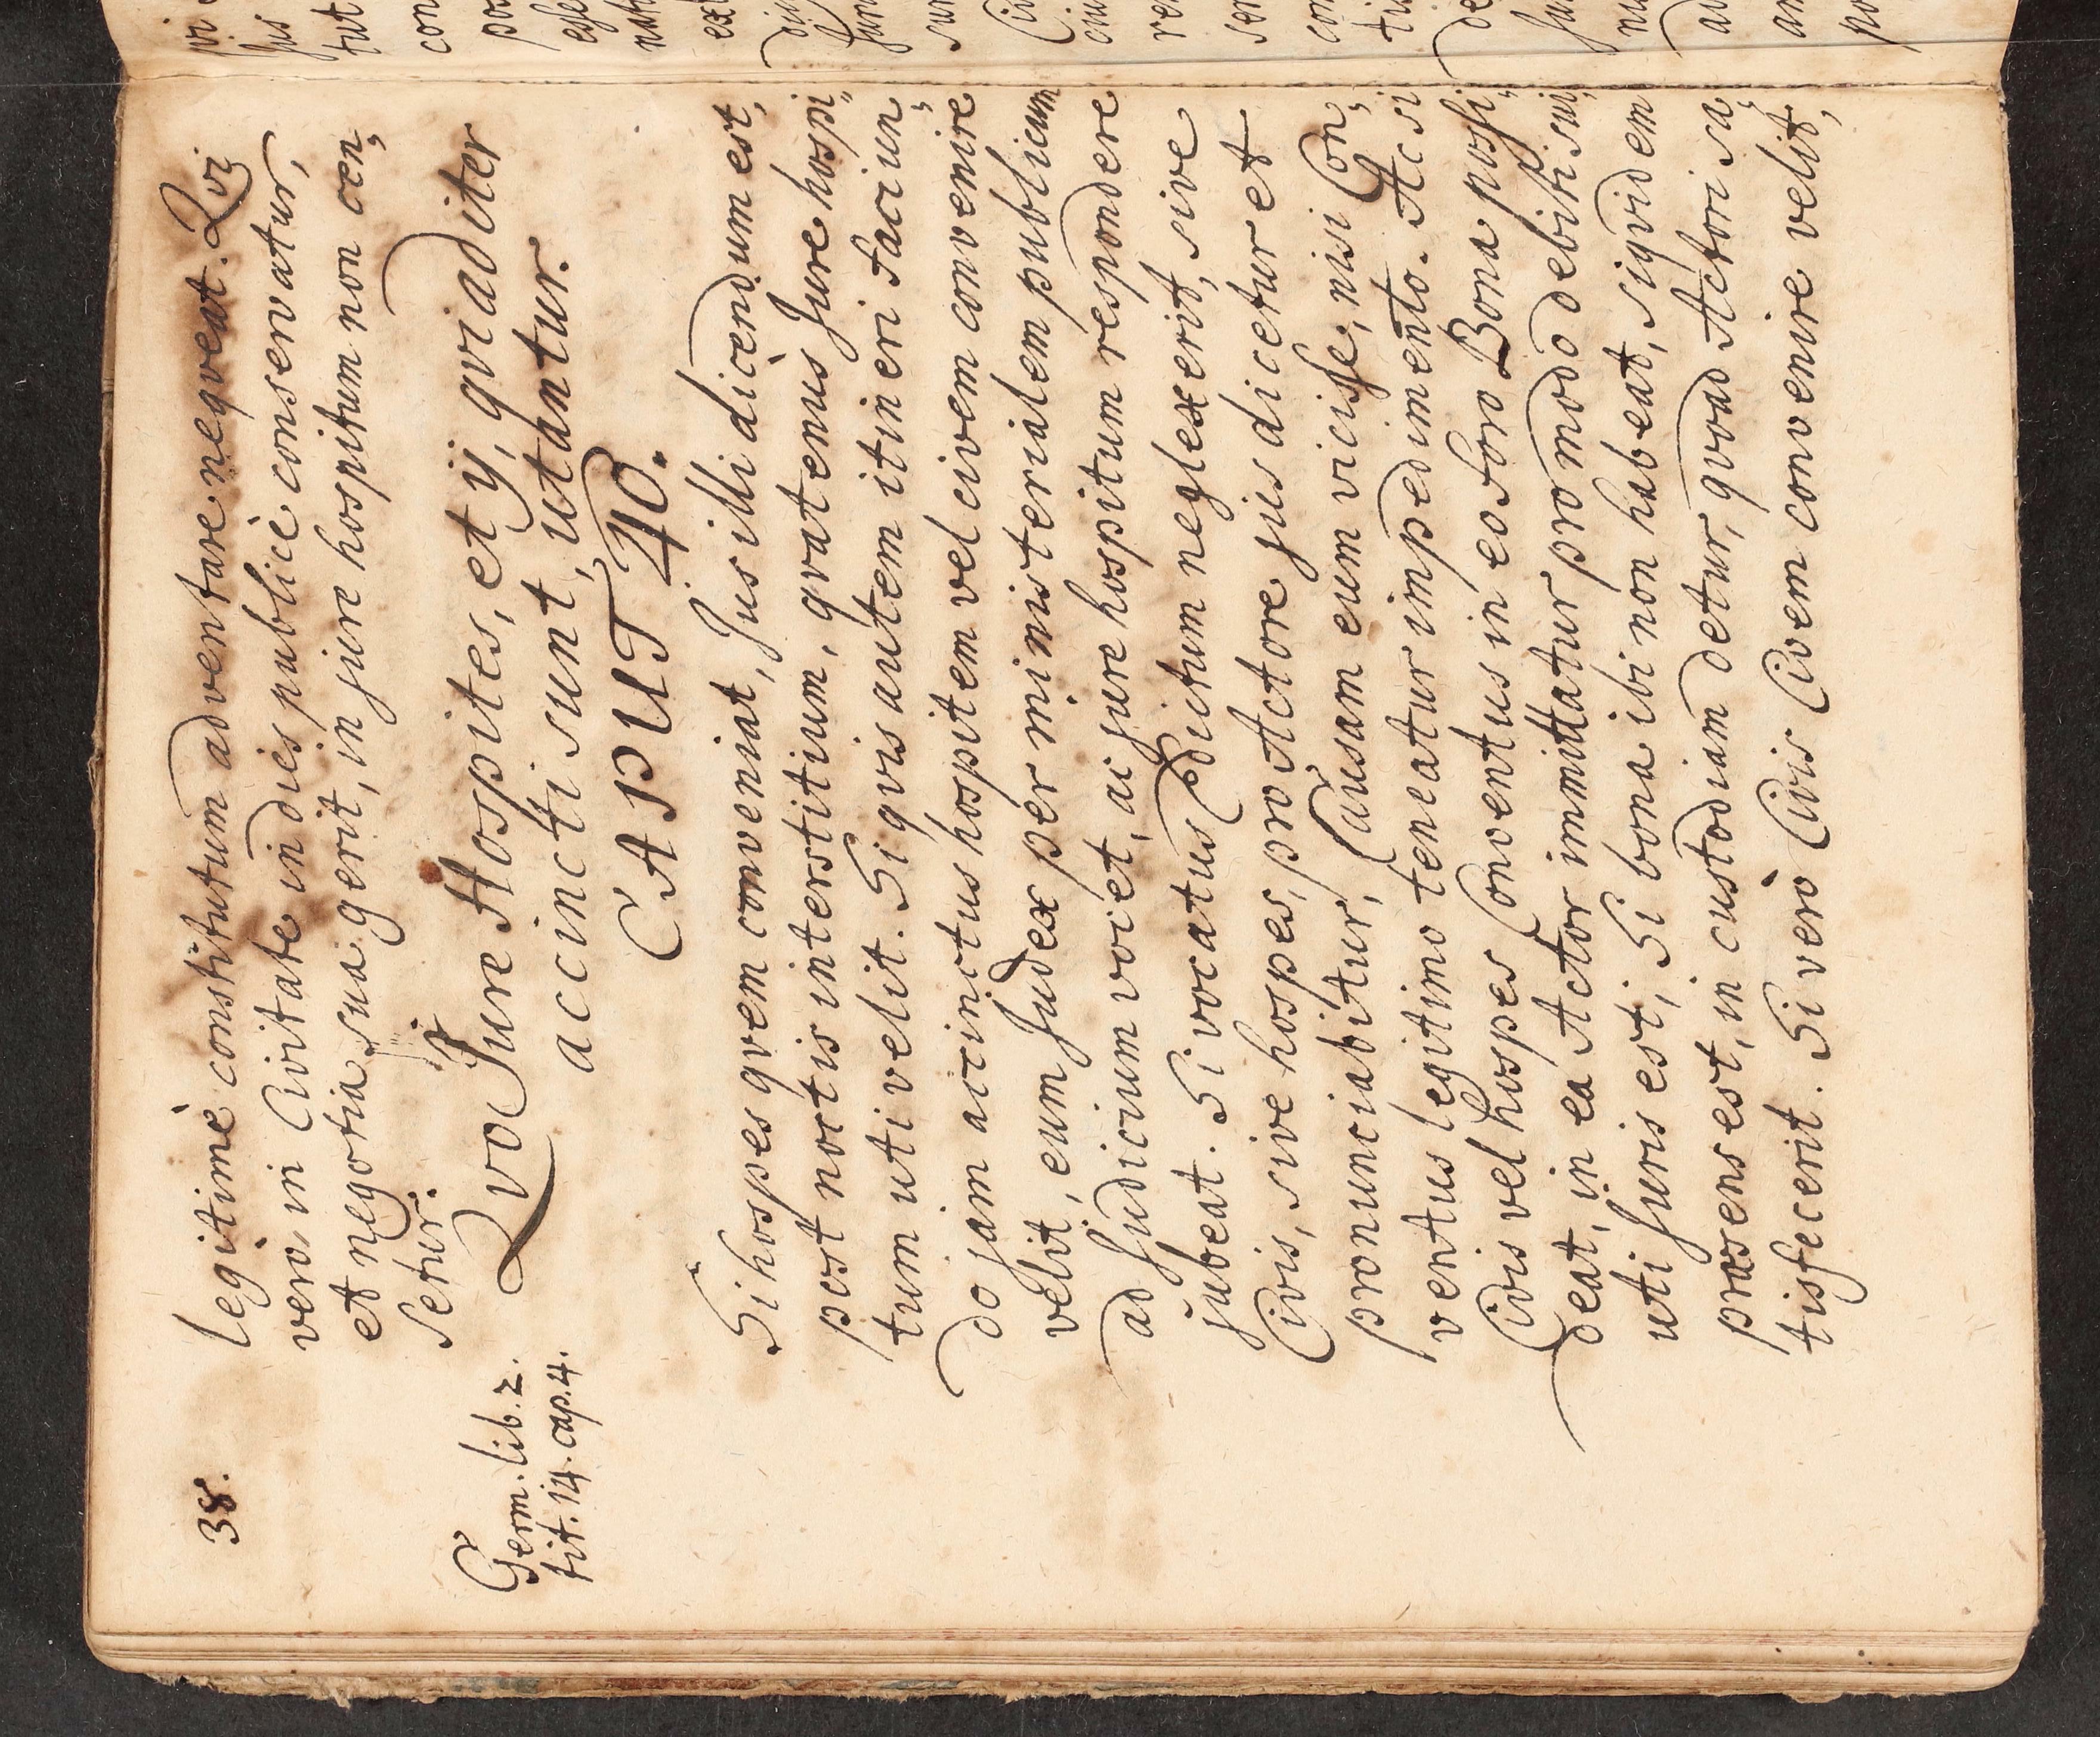 38.
legitimè constitutum adventare neqveat. Qvi
vero in Civitate indies publicè conservatur,
et negotia sua gerit, in jure hospitum non cen„
setur.
Germ. lib. 2.
tit. 14. cap. 4.
Qvo Jure Hospites, et ij, qvi ad iter
accincti sunt, utantur.
CAPUT 40.
Si hospes qvem conveniat, Jus illi dicendum est,
post noctis interstitium, qvatenus Jure hospi„
tum uti velit. Si qvis autem itineri faciun„
do jam accinctus hospitem vel civem convenire
velit, eum Judex per ministerialem publicum
ad Judicium vocet, ac jure hospitum respondere
jubeat. Si vocatus Edictum neglexerit, sive
Civis, sive hospes, pro Actore jus dicetur et
pronunciabitur, Causam eum vicisse, nisi Con„
ventus legitimo teneatur impedimento. Ac si
Civis vel hospes Conventus in eo foro Bona possi„
deat, in ea Actor immittatur pro modo debiti sui,
uti Juris est, Si bona ibi non habeat, siqvidem
præsens est, in custodiam detur, qvoad Actori sa„
tisfecerit. Si verò Civis Civem convenire velit,